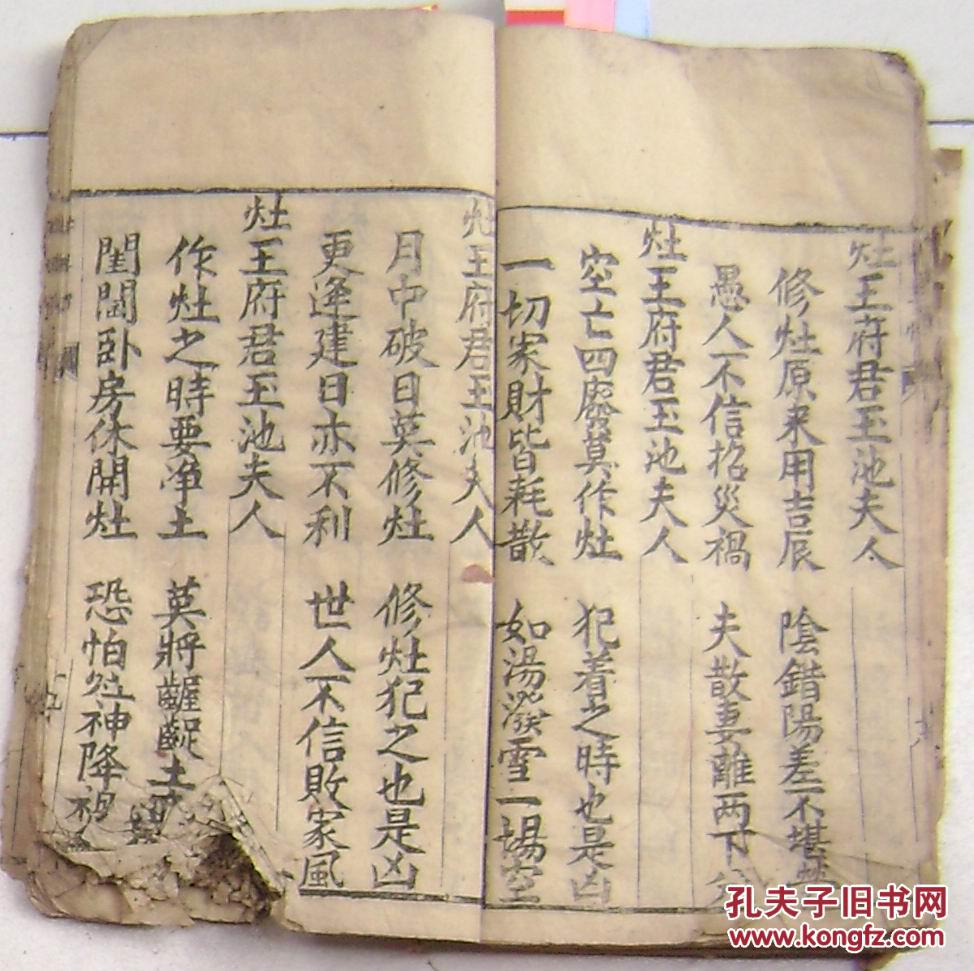 灶王府君玉池夫人
修灶原来用吉辰 陰錯陽差不堪
愚人不信招災禍 夫散妻離兩下
灶王府君玉池夫人
空亡四廢莫作灶 犯着之時也是凶
一切家財皆耗散 如湯潑雪一場空
灶王府君玉池夫人
月中破日莫修灶 修灶犯之也是凶
更逢建日亦不利 世人不信敗家風
灶王府君玉池夫人
作灶之時要净土 莫將齷齪土
閨閫卧房休開灶 恐怕灶神降禍
孔夫子旧书网
www.kongfz.com